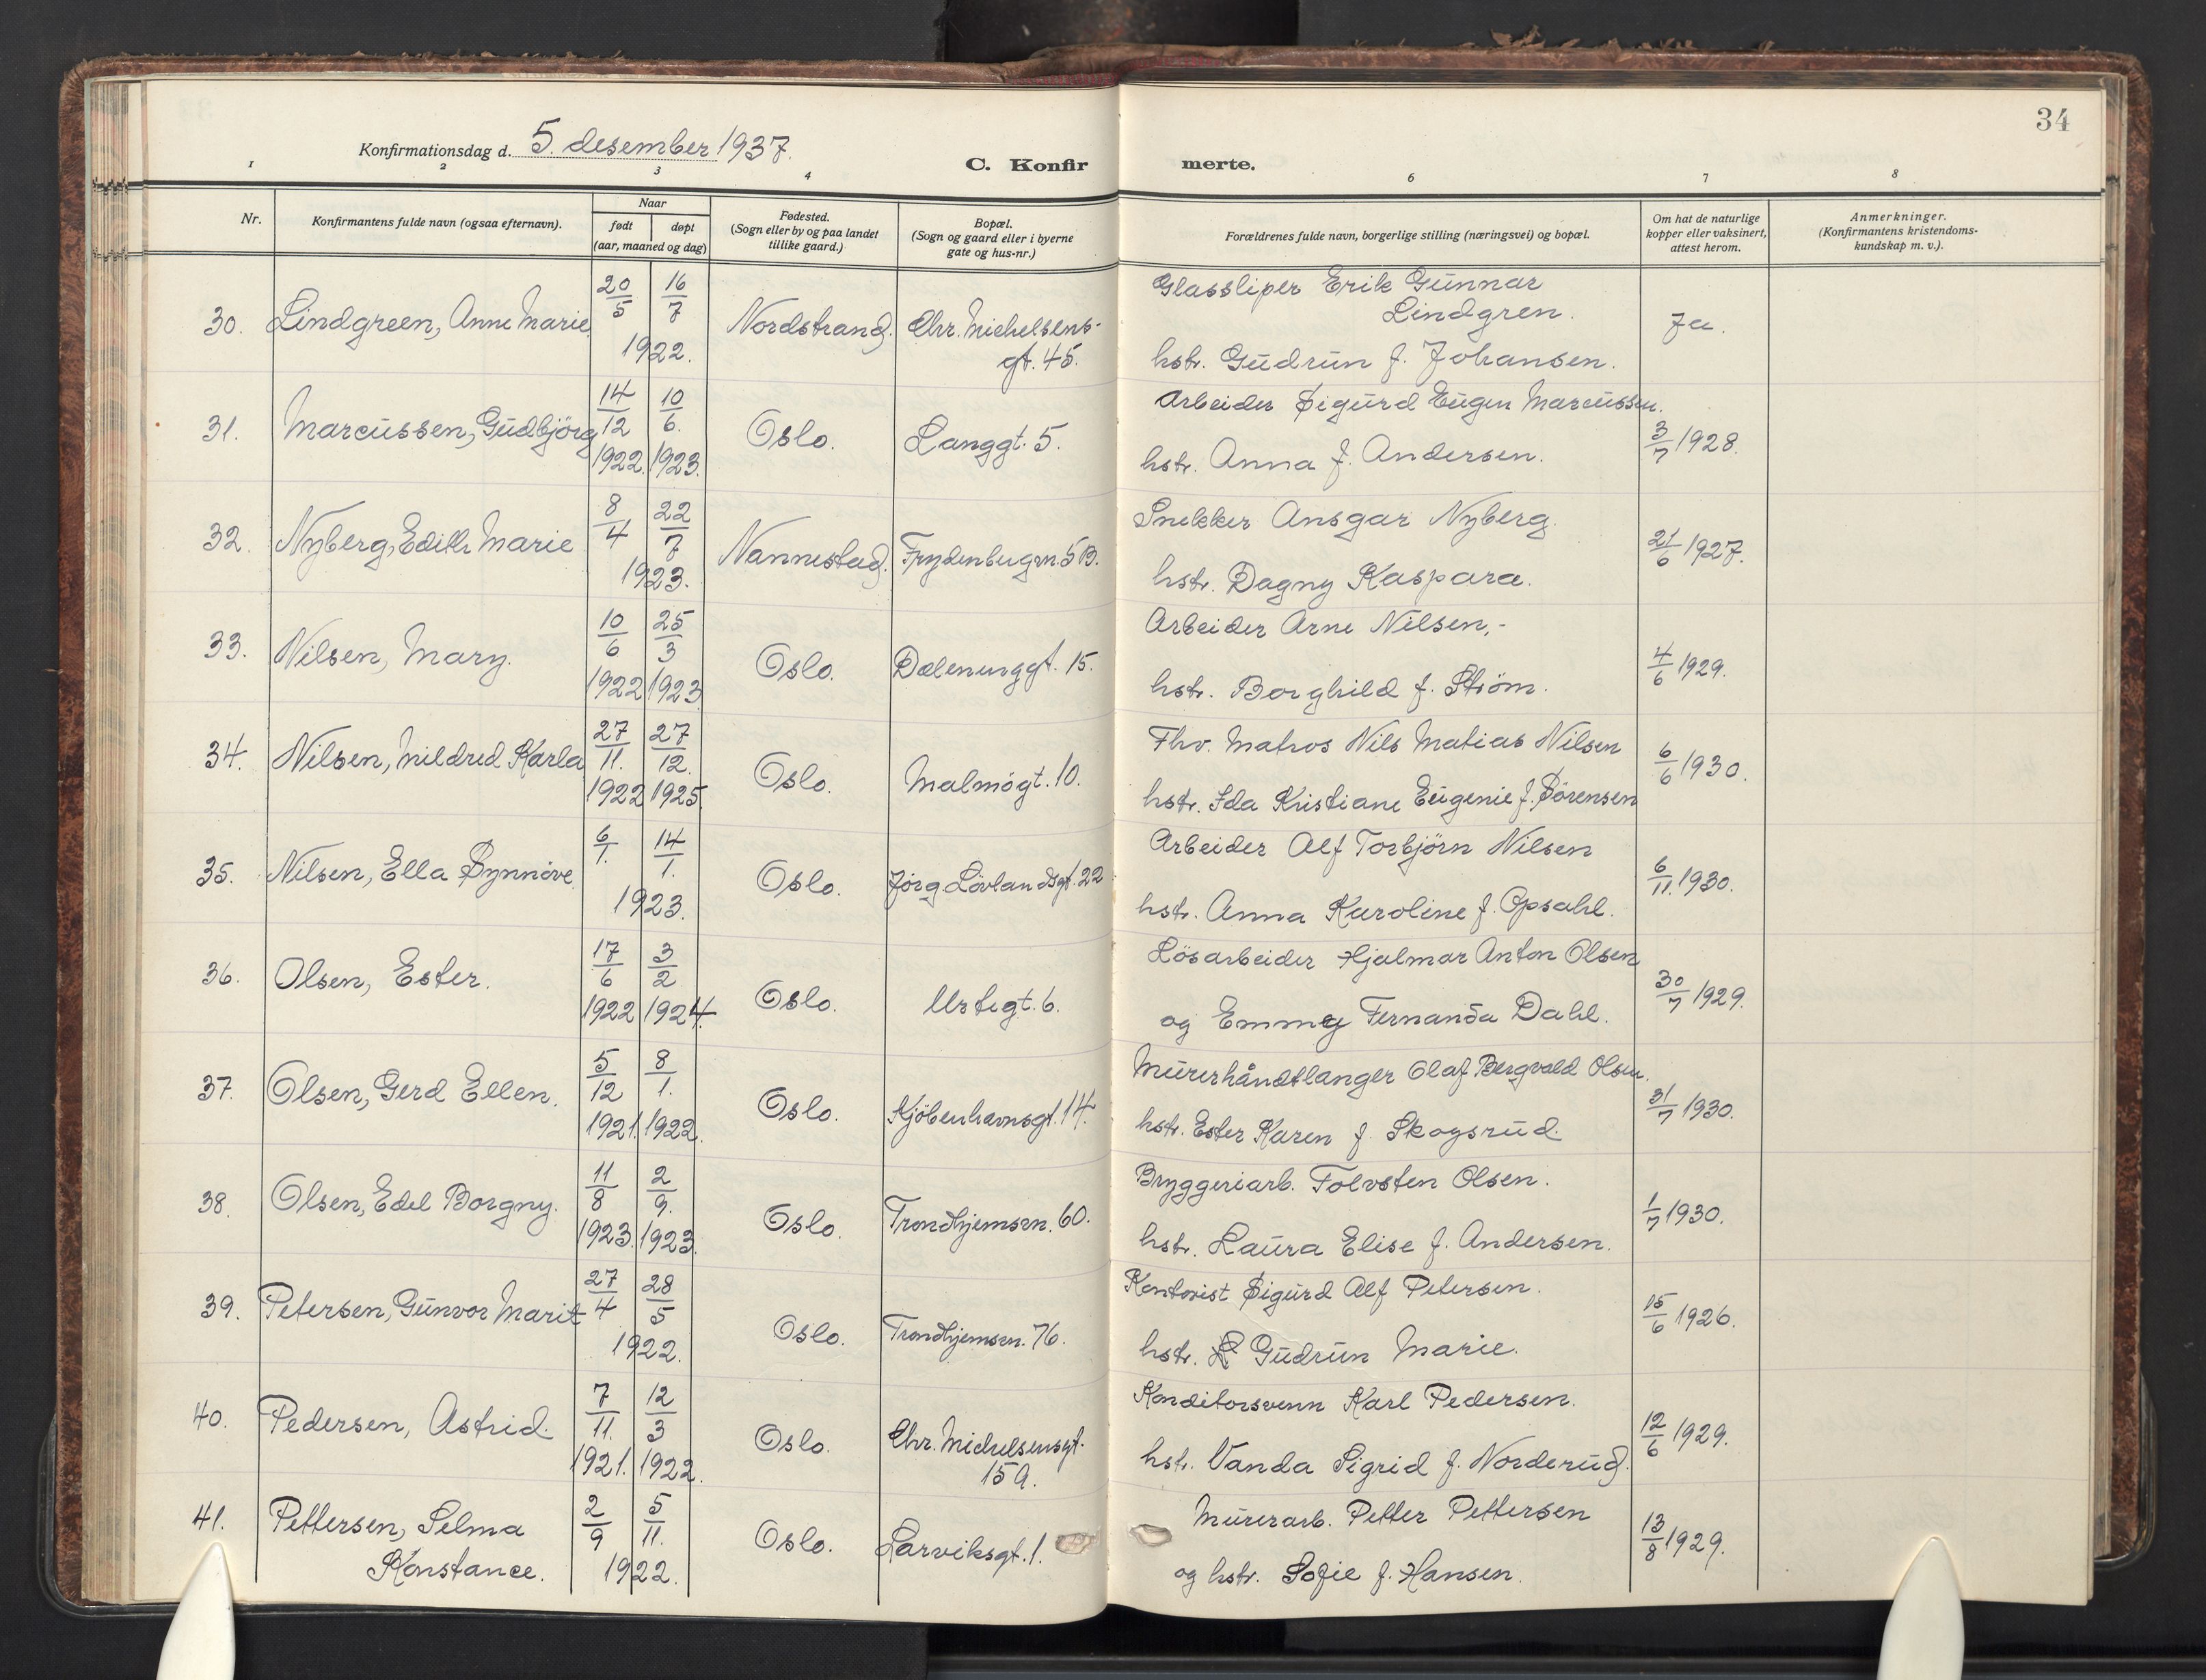 34
Konfirmationsdag d. 5. desember 1937.
C. Konfir merte.
1 2 3 4 6 7 8
Nr.
Konfirmantens fulde navn (ogsaa efternavn).
Naar
født døpt
(aar, maaned og dag)
Fødested.
(Sogn eller by og paa landet
tillike gaard.)
Bopæl.
(Sogn og gaard eller i byerne
gate og hus-nr.)
Forældrenes fulde navn, borgerlige stilling (næringsvei) og bopæl.
Om hat de naturlige
kopper eller vaksinert,
attest herom.
Anmerkninger.
(Konfirmantens kristendoms-
kundskap m. v.).
30. Lindgreen, Anne Marie 20/5 16/7 1922. Nordstrand. Chr. Michelsens-
gt. 45.
Glassliper Erik Gunnar
Lindgren.
hstr. Gudrun f. Johansen.
Ja.
31. Marcussen, Gudbjörg 14/12 1922. 10/6. 1923. Oslo. Langgt. 5.
Arbeider Sigurd Eugen Marcussen.
hstr. Anna f. Andersen.
3/7 1928.
32. Nyberg, Edith Marie 8/4 22/7 1923. Nannestad. Frydenbergvn. 5 B.
Snekker Ansgar Nyberg.
hstr. Dagny Kaspara.
21/6 1927.
33. Nilsen, Mary. 10/6 1922 25/3 1923 Oslo. Dælenenggt. 15.
Arbeider Arne Nilsen,-
hstr. Borghild f. Ström.
4/6 1929.
34. Nilsen, Mildred Karla 27/11. 1922 27/12. 1925. Oslo. Malmögt. 10.
Fhv. Matros Nils Matias Nilsen
hstr. Ida Kristiane Eugenie f. Sörensen
6/6 1930.
35. Nilsen, Ella Synnöve 6/1. 14/1. 1923. Oslo. Jörg Lövlandsgt. 22
Arbeider Alf Torbjörn Nilsen
hstr. Anna Karoline f. Opsahl.
6/11. 1930.
36. Olsen, Ester. 17/6 1922 3/2 1924. Oslo. Urtegt. 6.
Lösarbeider Hjalmar Anton Olsen
og Emmy Fernanda Dahl.
30/7 1929.
37. Olsen, Gerd Ellen. 5/12 1921. 8/1. 1922. Oslo. Kjöbenhavnsgt. 14.
Murerhåndtlanger Olaf Bergvald Olsen.
hstr. Ester Karen f. Skogsrud.
31/7 1930.
38. Olsen, Edel Borgny. 11/8 1923. 2/9. 1923. Oslo. Trondhjemsvn. 60.
Bryggeriarb. Tolvsten Olsen.
hstr. Laura Elise f. Andersen.
1/7 1930.
39. Petersen, Gunvor Marit 27/4 28/5 1922. Oslo. Trondhjemsvn. 76.
Kontorist Sigurd Alf Petersen.
hstr. Gudrun Marie.
15/6 1926.
40. Pedersen, Astrid. 7/11. 1921. 12/3 1922. Oslo. Chr. Michelsensgt.
15 a.
Konditorsvenn Karl Pedersen.
hstr. Vanda Sigrid f. Norderud.
12/6 1929.
41. Pettersen, Selma
Konstance. 2/9 5/11. 1922. Oslo. Larviksgt. 1.
Murerarb. Petter Pettersen
og hstr. Sofie f. Hansen.
13/8 1929.